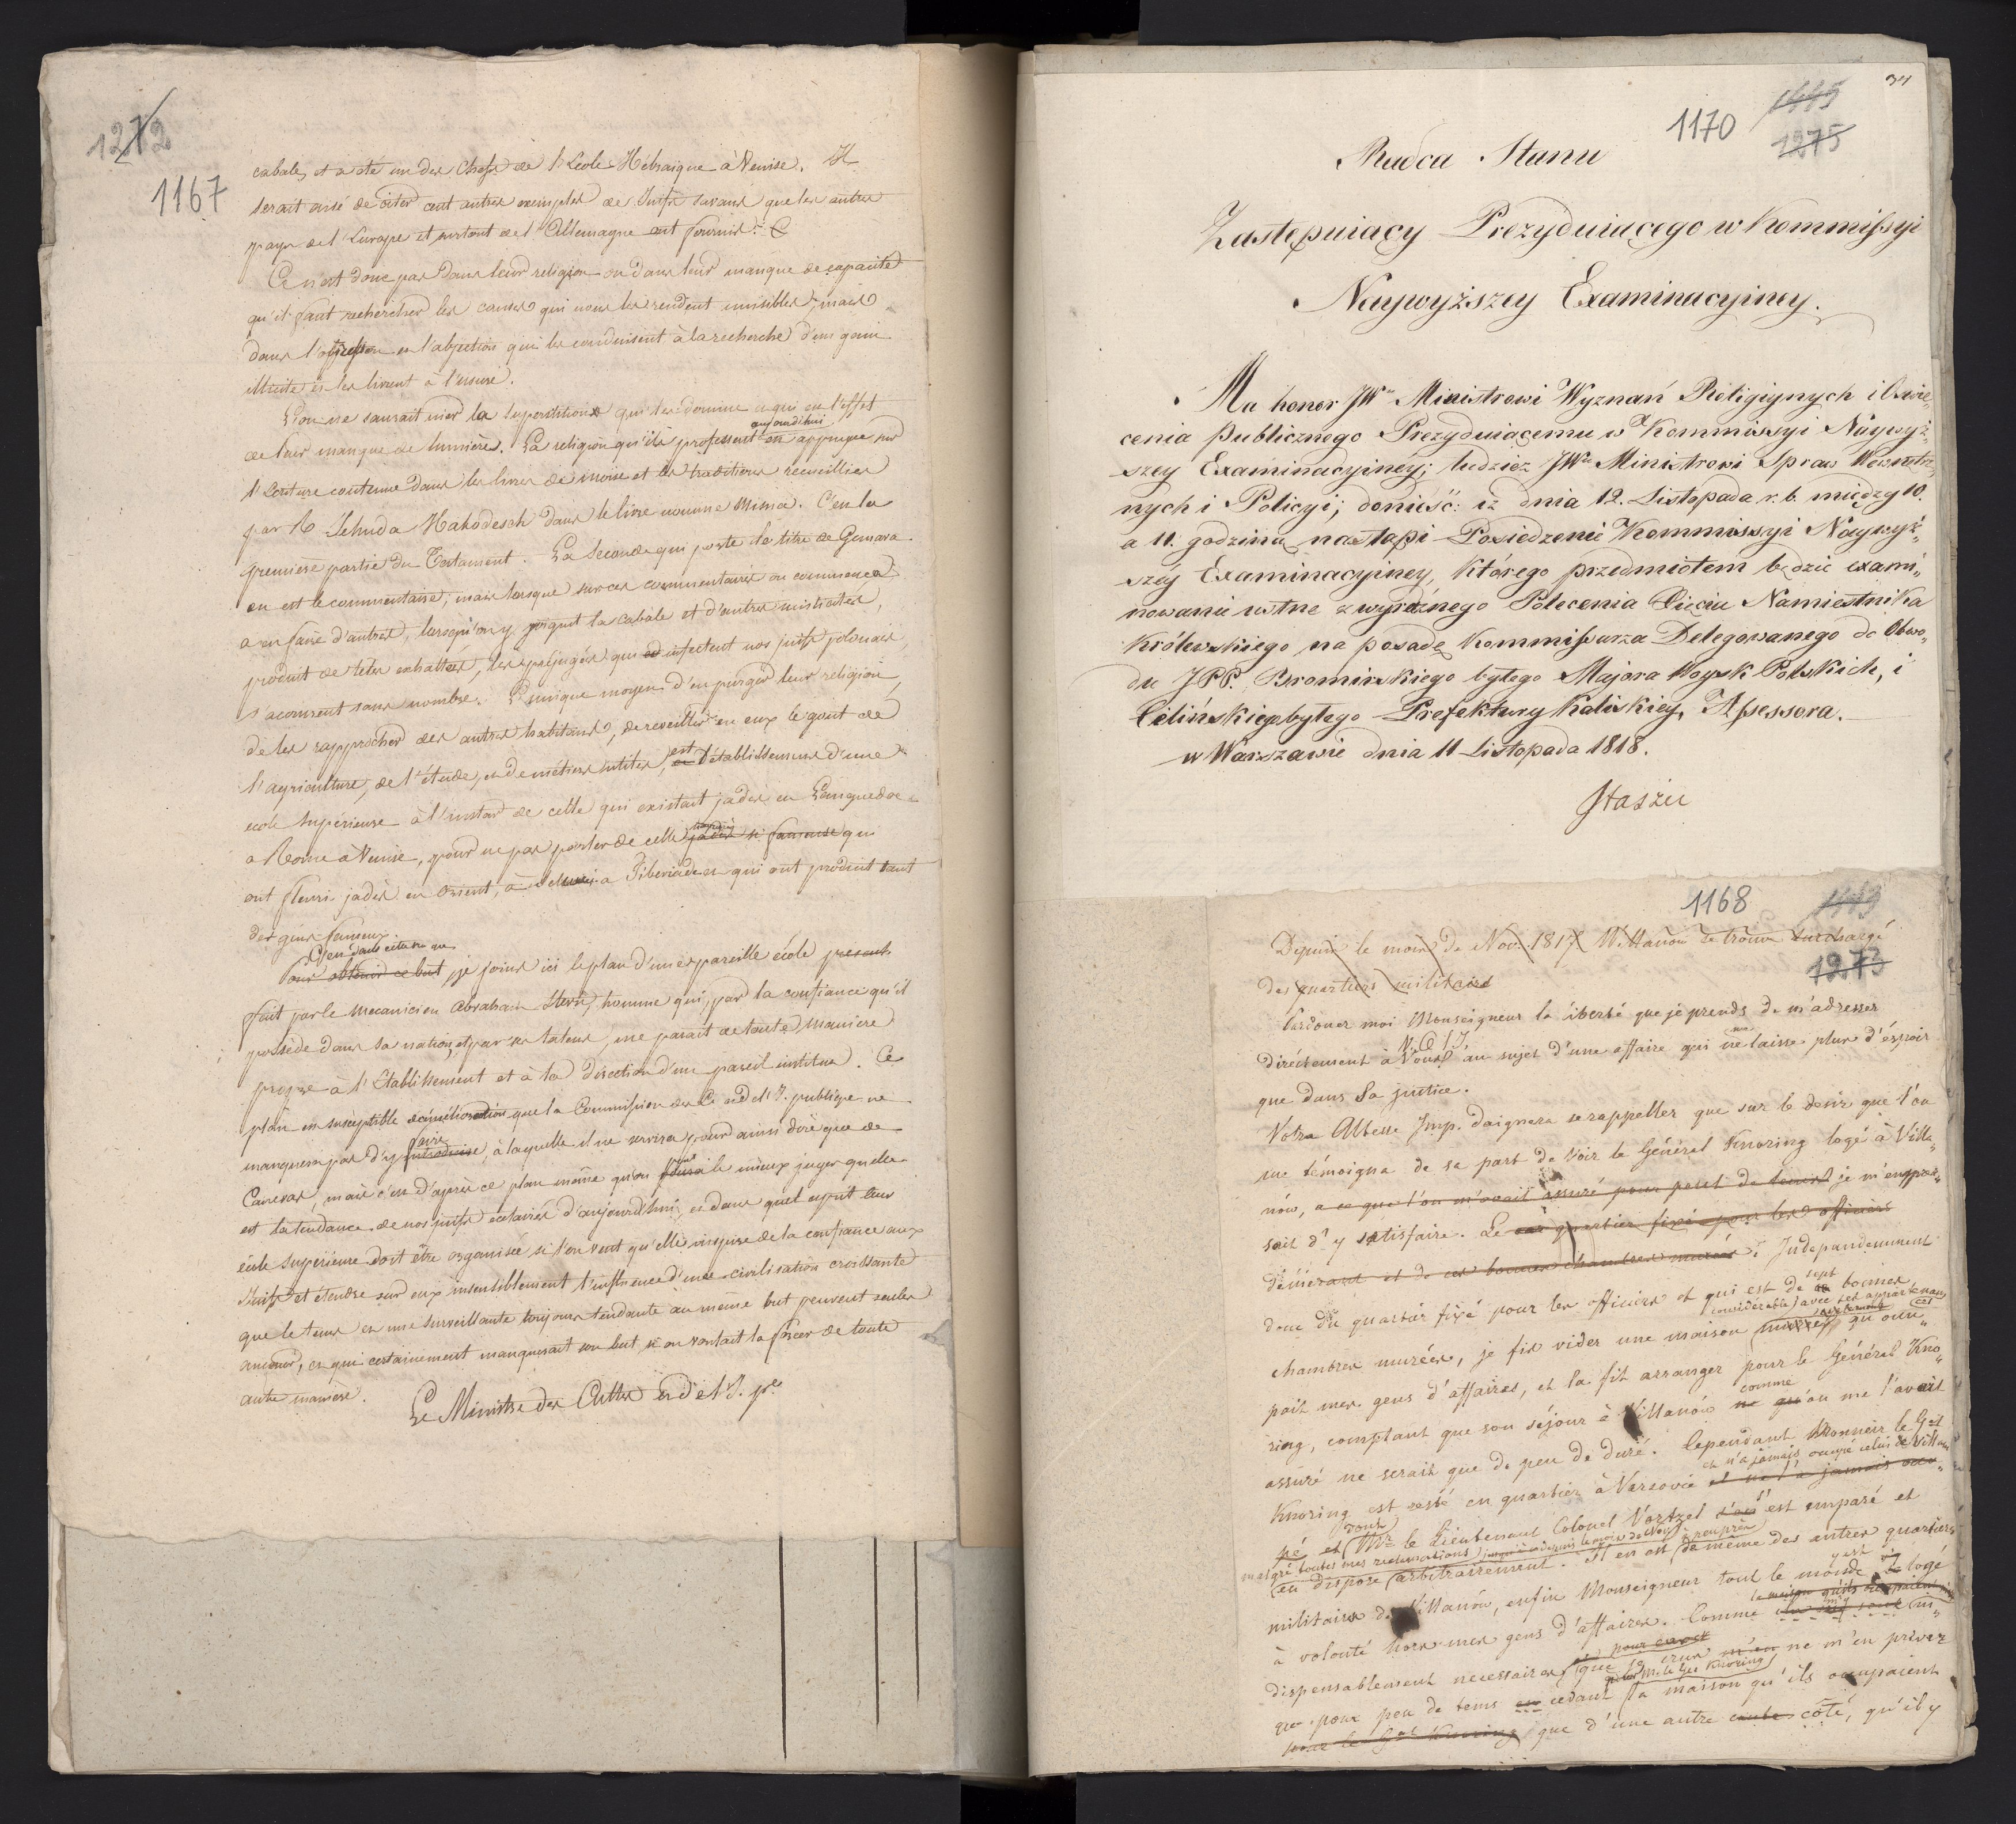 1272
1167
cabale, et a été un des Chefs de l'Ecole Hébraique à Venise. Il
serait aisé de citer cent autres exemples de Juifs savans que les autres
pays de l'Europe et surtout de l'Allemagne ont fournis.
Ce n'est donc pas dans leur religion ou dans leur manque de capacité
qu'il faut rechercher les causes qui nous les rendent nuisibles, mais
dans l'oppression et l'abjection qui les conduisent à la recherche d'un gain
illicite et les livrent à l'usure.
L'on ne saurait nier la superstition qui les domine et qui est l'effet
aujourd'hui
de leur manque de lumières. La religion qu'ils professent est appuyée sur
l'Ecriture contenue dans les livres de moise et les traditions recueillies
par R. Jehuda Hakodesch dans le livre nommé Misna. C'est la
premiere partie du Testament. La seconde qui porte le titre de Gemara
en est le commentaire; mais lorsque sur ces commentaires on commença
a en faire d'autres, lorsqu'on y joignit la cabale et d'autres misticités,
produit de têtes exhaltées, les préjugés qui infectent nos juifs polonais
s'accrurent sans nombre. L'unique moyen d'en purger leur religion,
de les rapprocher des autres habitans, de reveiller en eux le gout de
l'agriculture, de l'étude, et de métiers utiles, est l'établissement d'une
ecole supérieure à l'instar de celle qui existait jadis en Languedoc
a Rome à Venise, pour ne pas parler de celle jadis si fameuse qui
ont fleuri jadis en Orient, à a Tiberiade et qui ont produit tant
des gens fameux.
C'est dans cette vue que
Pour obtenir ce but je joins ici le plan d'une pareille école
fait par le mecanicien Abraham Stern, homme qui, par la confiance qu'il
possède dans sa nation, et par ses talens, me parait de toute maniere
propre à l'Etablissement et à la direction d'un pareil institut. Ce
plan est susceptible d'amélioration que la Commission des C. et d. l'I. publique ne
faire
manquera pas d'y introduire, à laquelle il ne servira pour ainsi dire que de
Canevas, mais c'est d'après ce plan même qu'on peut le mieux juger quelle
est la tendance de nos juifs eclairés d'aujourd'hui, et dans quel esprit leur
école supérieure doit être organisée si l'on veut qu'elle inspire de la confiance aux
Juifs et étendre sur eux insensiblement l'influence d'une civilisation croissante
que le tems et une surveillante toujours tendante au même but peuvent seules
amener, et qui certainement manquerait son but si on voulait la forcer de toute
autre manière.
Le Ministre des Cultes et de l'I. pe
34
1170
1275
Radca Stanu
Zastępuiący Prezyduiącego w Kommissyi
Naywyższey Examinacyiney.
Ma honor JWu Ministrowi Wyznań Religiynych i Oświe„
cenia Publicznego Prezyduiącemu w Kommissyi Naywyż„
szey Examinacyiney; tudzież JWu Ministrowi Spraw Wewnętrz„
nych i Policyi; donieść: iż dnia 12. Listopada r. b. między 10.
a 11. godziną nastąpi Posiedzenie Kommissyi Naywyż„
széy Examinacyiney, którego przedmiotem będzie exami„
nowanie ustne z wyraźnego Polecenia Xięcia Namiestnika
Królewskiego na posadę Kommissarza Delegowanego do Obwo„
du JPP. Bromirskiego byłego Majora Woysk Polskich, i
Cilińskiego byłego Prefektury Kaliskiey, Assessora.
w Warszawie dnia 11 Listopada 1818.
Staszic
1168
1273
Depuis le mois de Nov. 1817 Willanow se trouve surchargé
des quartiers militaires
Pardonez moi Monseigneur la liberté que je prends de m'adresser
V. A. I.
directement à Vous au sujet d'une affaire qui ne laisse plus d'éspoir
que dans Sa justice.
Votre Altesse Imp. daignera se rappeller que sur le desir que l'on
me témoigna de sa part de voir le Général Knoring logé à Villa„
nów, a ce que l'on m'avait assuré pour peut de tems je m'empres„
sait d'y satisfaire. Le quartier fixé pour les officiers
demeurant et de ces bonnes chambres murées. Independemment
donc du quartier fixé pour les officiers et qui est de sept bonnes
considerable avec ses appartenans
chambres murées, je fis vider une maison qu'occu„
pait mes gens d'affaires, et la fit arranger pour le Général Kno„
comme
ring, comptant que son séjour à Villanów ne qu'on me l'avait
assuré ne serait que de peu de duré. Cependant Monsieur le Gal
et n'a jamais occupé celui de Villanow
Knoring est resté en quartier à Varsovie et ne l'a jamais occu„
pé et Mr le Lieutenant Colonel Vortzel s'est emparé et
malgré toutes mes reclamations
en dispose arbitrairement. Il en est de même des autres quartiers
militaires de Villanów, enfin Monseigneur tout le monde y est logé
à volonté hors mes gens d'affaires. Comme in„
dispensablement necessaires que je crus ne m'en priver
que pour peu de tems en cedant la maison qu'ils occupaient
pour le Gal Knoring que d'une autre côté, qu'il y